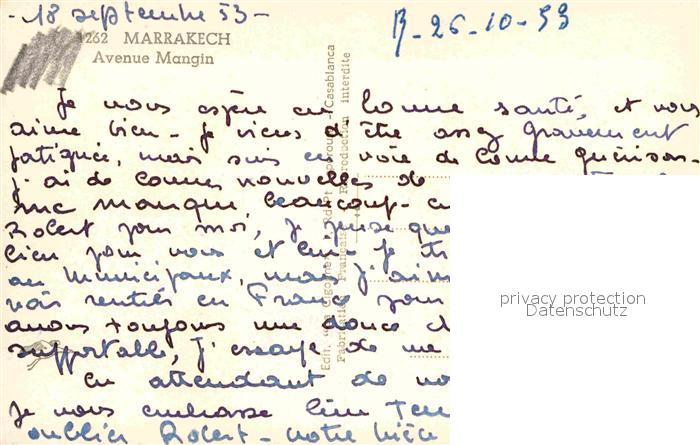 18 septembre 53 -
R - 26-10-53
1262 MARRAKECH
Avenue Mangin
Je vous espère en bonne santé, et vous
aime bien - Je viens d'être assez gravement
fatiguée, mais suis en voie de bonne guérison -
j'ai de bonnes nouvelles de
me manque beaucoup -
Robert pour moi, je pense que
bien pour vous et lui - Je
au Municipaux, mais j'aim
rentiés en France pour
avons toujours une douce
supportable, j'essaye de me
En attendant de
Je vous embrasse bien Ten
oublier Robert - notre
Edit. "La Cigogne" Casablanca
Fabrication Française - Reproduction interdite
privacy protection
Datenschutz